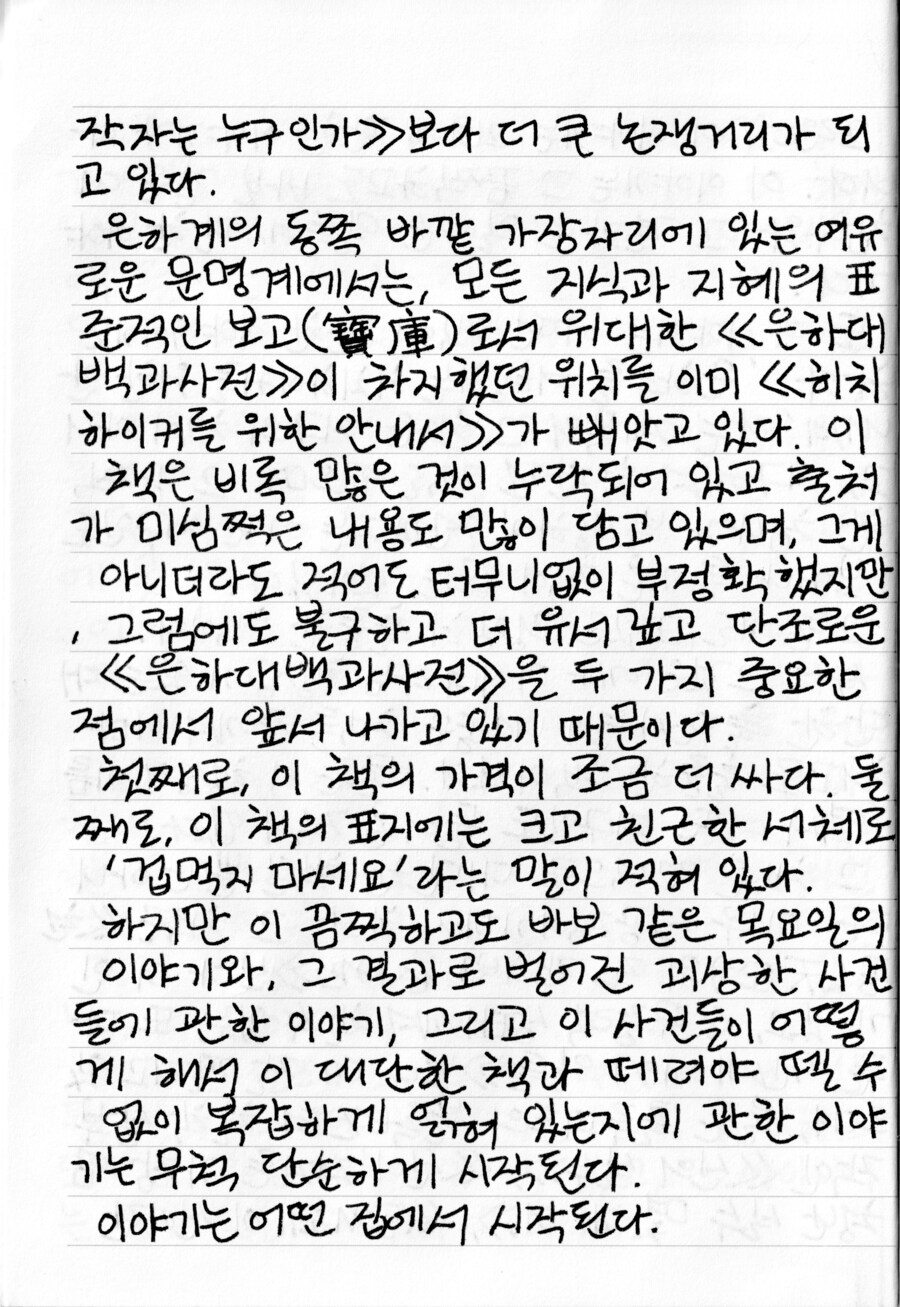 작자는 누구인가≫보다 더 큰 논쟁거리가 되
고 있다.
은하계의 동쪽 바깥 가장자리에 있는 여유
로운 문명계에서는, 모든 지식과 지혜의 표
준적인 보고(寶庫)로서 위대한 ≪은하대
백과사전≫이 차지했던 위치를 이미 ≪히치
하이커를 위한 안내서≫가 빼앗고 있다. 이
책은 비록 많은 것이 누락되어 있고 출처
가 미심쩍은 내용도 많이 담고 있으며, 그게
아니더라도 적어도 터무니없이 부정확했지만
, 그럼에도 불구하고 더 유서 깊고 단조로운
≪은하대백과사전≫을 두 가지 중요한
점에서 앞서 나가고 있기 때문이다.
첫째로, 이 책의 가격이 조금 더 싸다. 둘
째로, 이 책의 표지에는 크고 친근한 서체로
'겁먹지 마세요'라는 말이 적혀 있다.
하지만 이 끔찍하고도 바보 같은 목요일의
이야기와, 그 결과로 벌어진 괴상한 사건
들에 관한 이야기, 그리고 이 사건들이 어떻
게 해서 이 대단한 책과 떼려야 뗄 수
없이 복잡하게 얽혀 있는지에 관한 이야
기는 무척 단순하게 시작된다.
이야기는 어떤 집에서 시작된다.